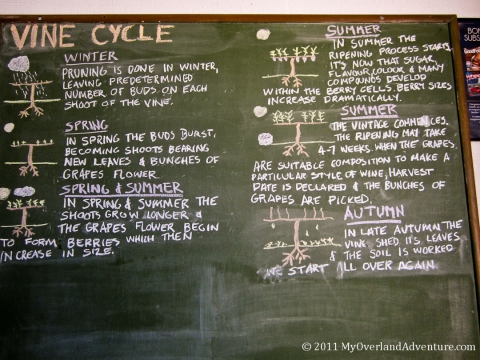 VINE CYCLE
WINTER
PRUNING IS DONE IN WINTER,
LEAVING PREDETERMINED
NUMBER OF BUDS ON EACH
SHOOT OF THE VINE.
SPRING
IN SPRING THE BUDS BURST,
BECOMING SHOOTS BEARING
NEW LEAVES & BUNCHES OF
GRAPES FLOWER.
SPRING & SUMMER
IN SPRING & SUMMER THE
SHOOTS GROW LONGER &
THE GRAPES FLOWER BEGIN
TO FORM BERRIES WHICH THEN
INCREASE IN SIZE.
SUMMER
IN SUMMER THE
RIPENING PROCESS STARTS,
IT'S NOW THAT SUGAR,
FLAVOUR, COLOUR & MANY
COMPOUNDS DEVELOP
WITHIN THE BERRY CELLS. BERRY SIZES
INCREASE DRAMATICALLY.
SUMMER
THE VINTAGE COMMENCES.
THE RIPENING MAY TAKE
4-7 WEEKS. WHEN THE GRAPES
ARE SUITABLE COMPOSITION TO MAKE A
PARTICULAR STYLE OF WINE, HARVEST
DATE IS DECLARED & THE BUNCHES OF
GRAPES ARE PICKED.
AUTUMN
IN LATE AUTUMN THE
VINE SHED IT'S LEAVES
& THE SOIL IS WORKED
WE START ALL OVER AGAIN.
© 2011 MyOverlandAdventure.com